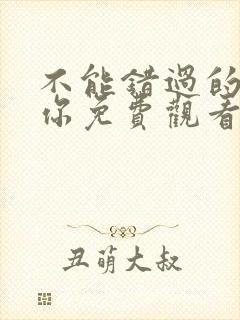 不能錯過的
你免費觀看
丑萌大叔